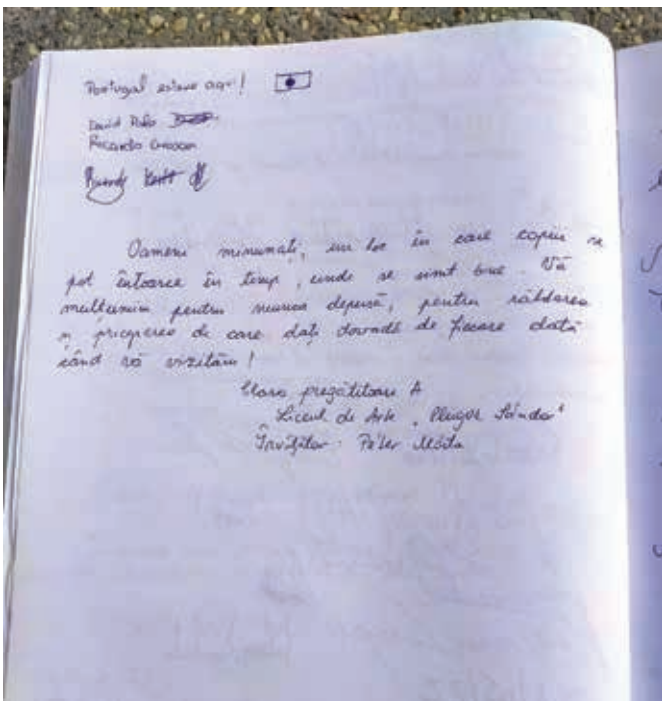 Portugal esteve aqui!
David
Ricardo
Oameni minunați, un loc în care copiii se
pot întoarce în timp, unde se simt bine. Vă
mulțumim pentru munca depusă, pentru răbdarea
și priceperea de care dați dovadă de fiecare dată
când vă vizităm!
Clasa pregătitoare A
Liceul de Arte „Plugor Sándor"
Învățător: Péter